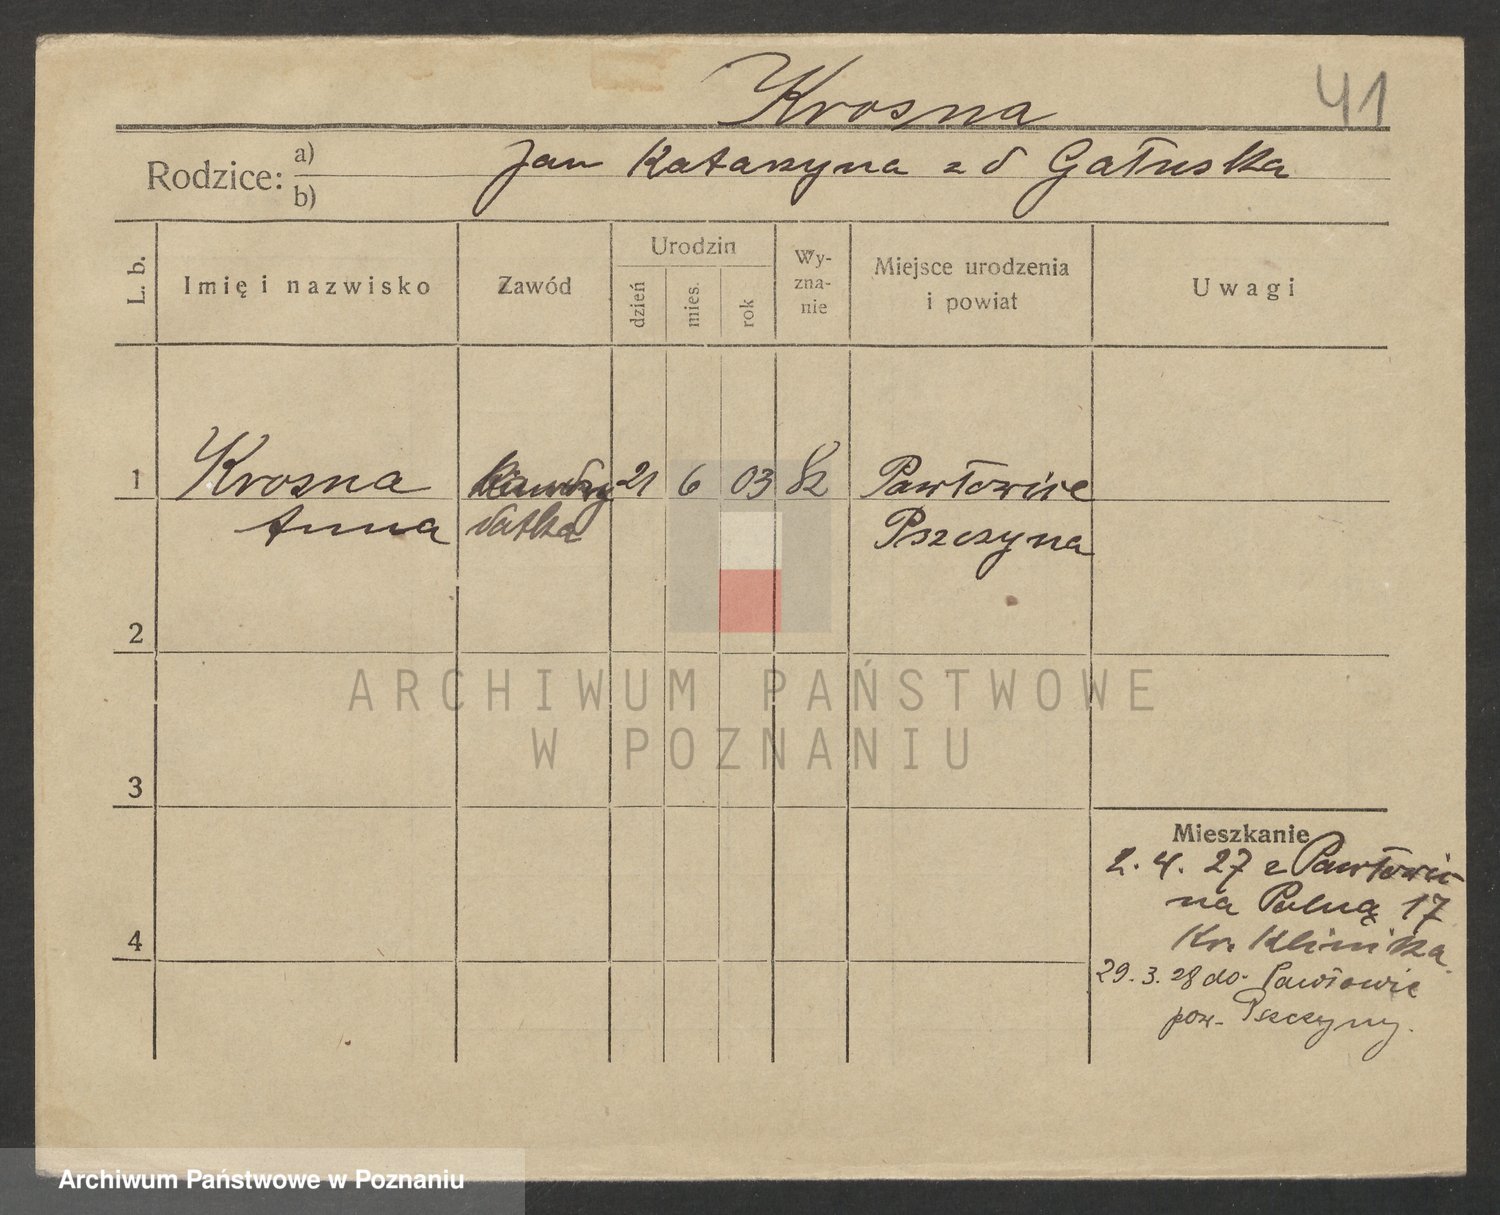 Krosna
41
Rodzice: a) b)
Jan Katarzyna z d Gałuszka
L. b. Imię i nazwisko Zawód Urodzin dzień mies. rok Wy-zna-nie Miejsce urodzenia i powiat Uwagi
1 Krosna 21 6 03 Pawłowice
Anna Pszczyna
2
ARCHIWUM PAŃSTWOWE
W POZNANIU
3
Mieszkanie
2. 4. 27 z Pawłowic
na Polną 17
Klinika
4
29. 3. 28 do Pawłowic
pow. Pszczyny.
Archiwum Państwowe w Poznaniu